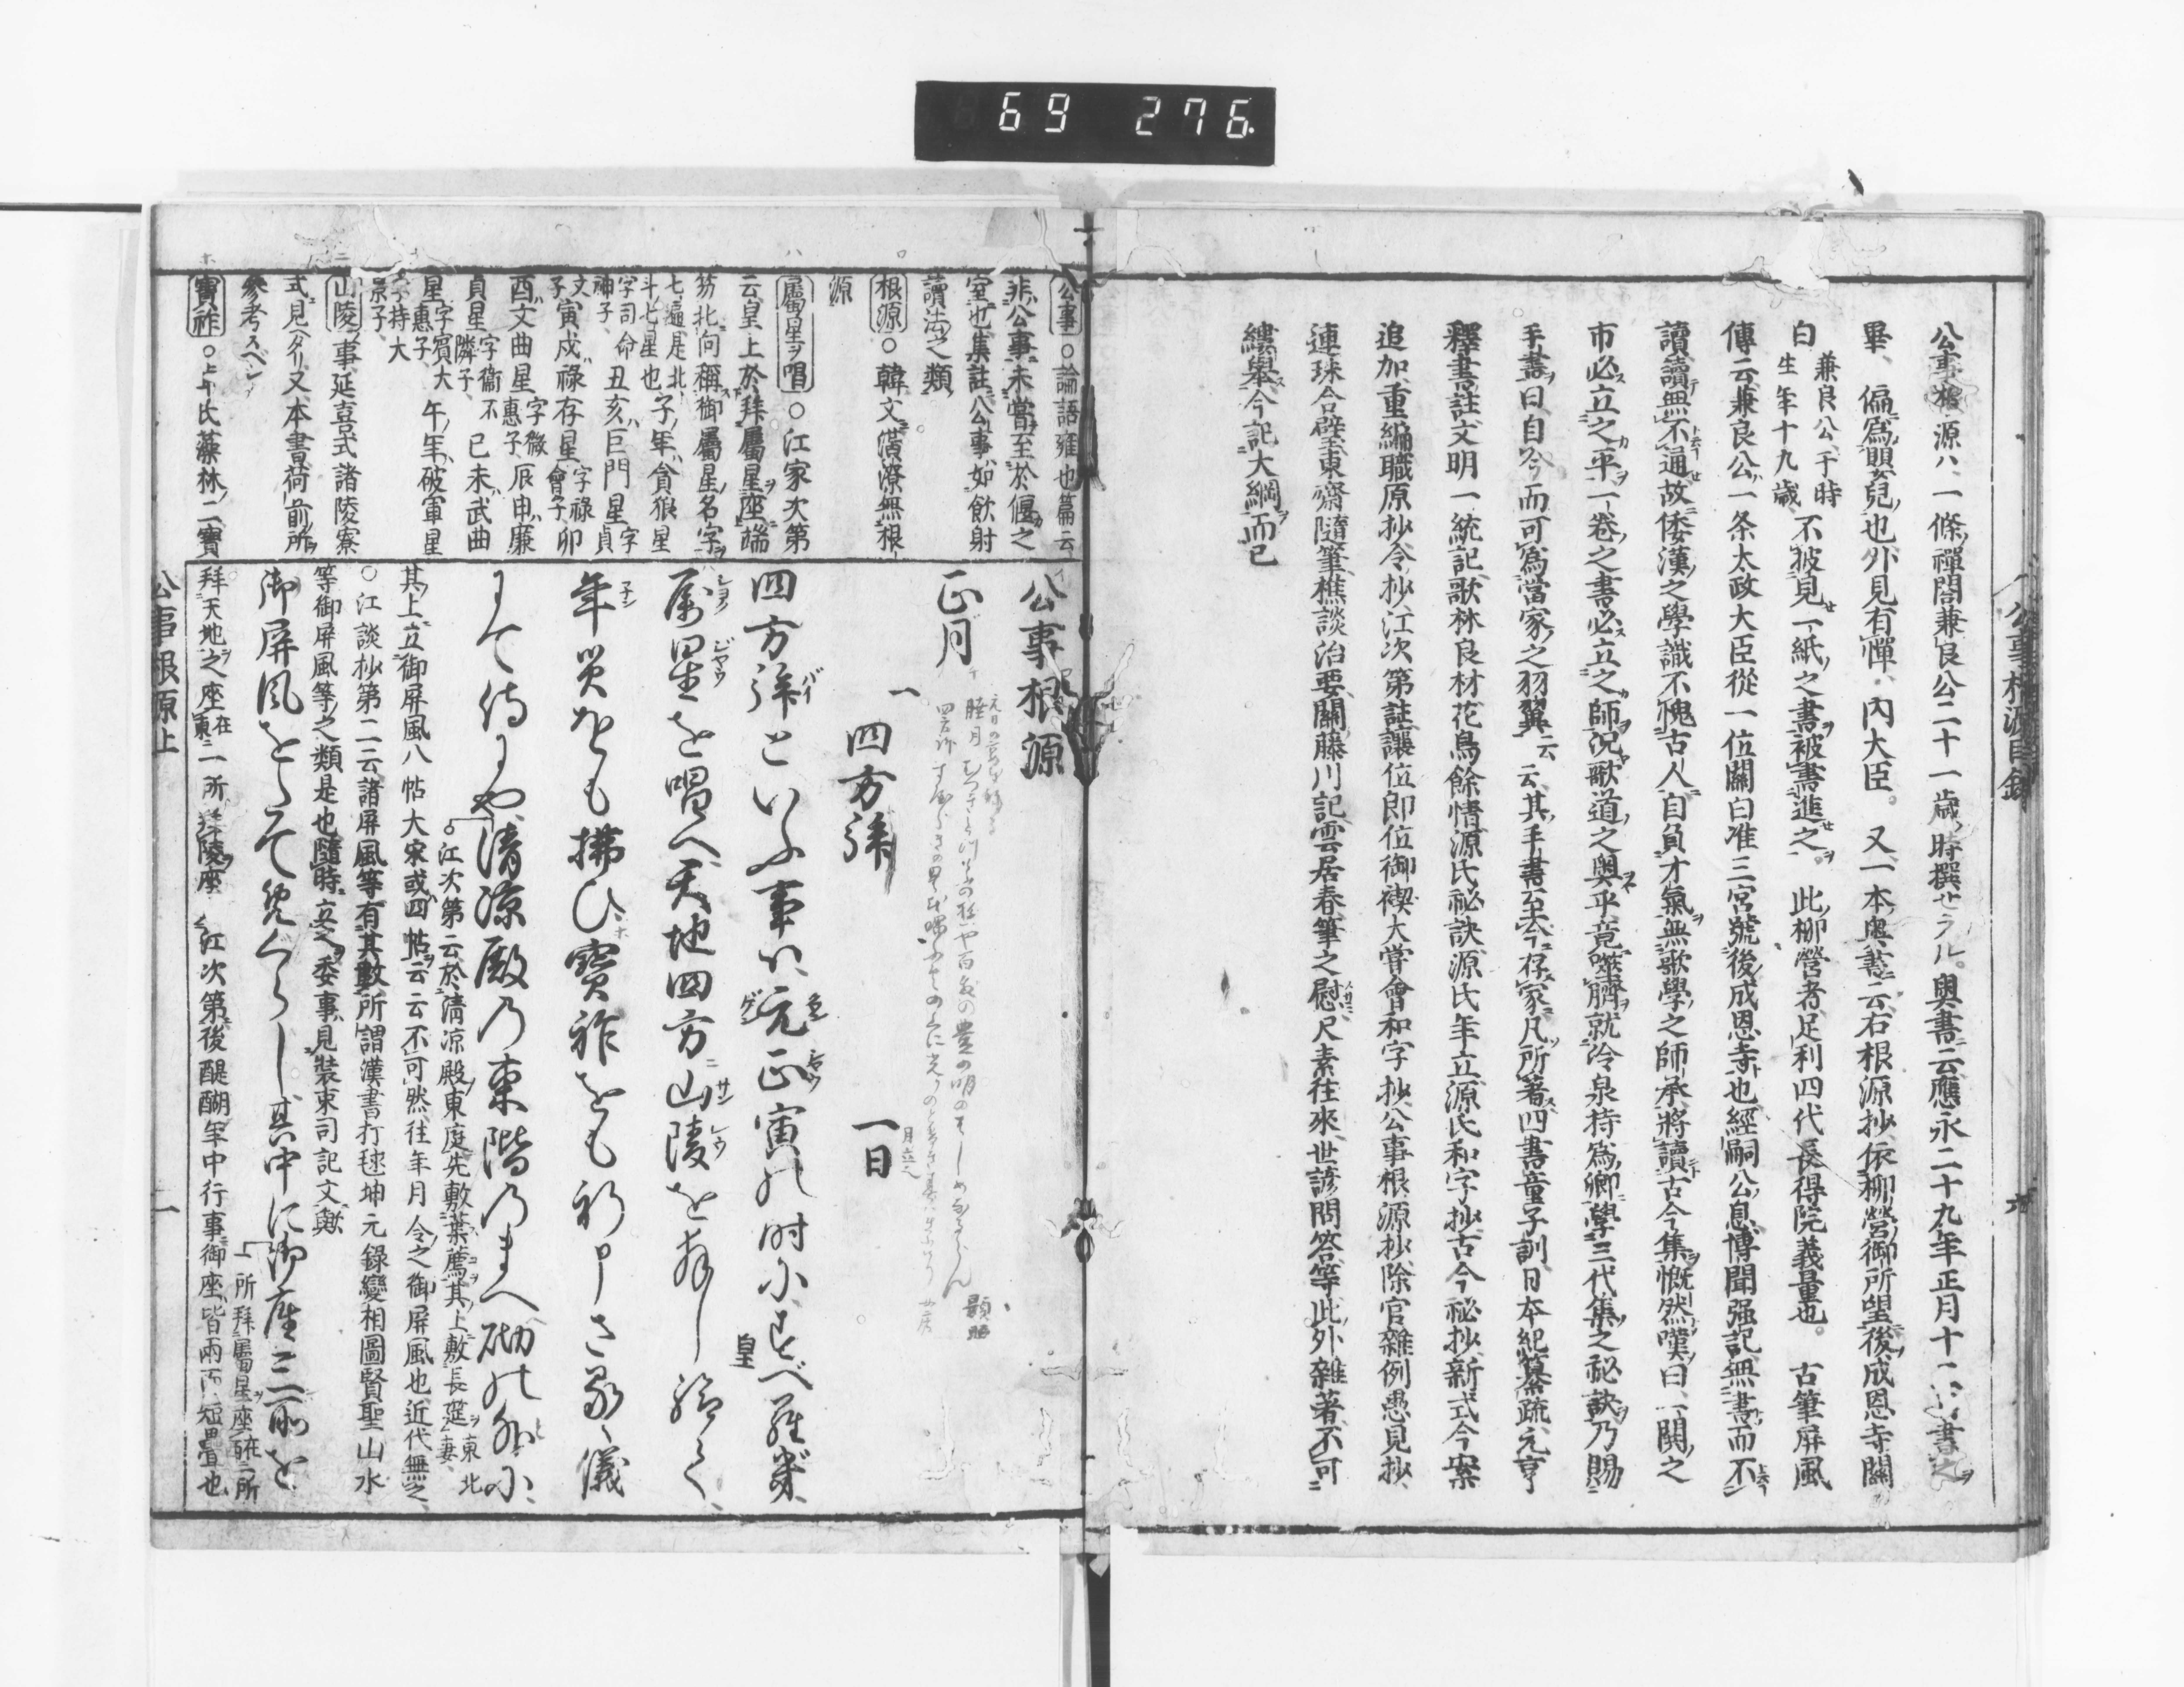 69 276
公事根源目録
公事根源ハ、一條禪閤兼良公二十一歳時撰セラル。奥書云應永二十九年正月十二日書之
畢、偏爲嬰兒也外見有憚、内大臣。又一本奥書云右根源抄依柳營御所望後成恩寺關
白
兼良公于時
生年十九歳
不披見一紙之書被書進之。此柳營者足利四代長得院義量也。古筆屏風
傳云兼良公一条太政大臣從一位關白准三宮號後成恩寺也經嗣公息博聞强記無書而不
讀讀無不通故倭漢之學識不愧古人自負才氣無歌學之師承將讀古今集慨然嘆曰一關之
市必立之平一卷之書必立之師況歌道之奥乎竟噬臍就冷泉持爲卿學三代集之秘訣乃賜
手書曰自今而可爲當家之羽翼云云其手書至今存家凡所著四書童子訓日本紀纂疏元亨
釋書註文明一統記歌林良材花鳥餘情源氏祕訣源氏年立源氏和字抄古今祕抄新式今案
追加重編職原抄令抄江次第註讓位即位御禊大嘗會和字抄公事根源抄除官雜例愚見抄
連珠合璧東齋隨筆樵談治要關藤川記雲居春筆之慰尺素往來世諺問答等此外雜著不可
縷擧今記大綱而已
公事○論語雍也篇云
非公事未嘗至於偃之
室也集註公事如飲射
讀法之類
根源○韓文潢潦無根
源
屬星ヲ唱○江家次第
云皇上於拜屬星座端
笏北向稱御屬星名字
七遍是北
斗七星也
子年貪狼星
字司命
神子
丑亥巨門星
字貞
文子
寅戌祿存星
字祿
會子
卯
酉文曲星
字微
惠子
辰申廉
貞星
字衞
隣子
不
巳未武曲
星
字賓大
惠子
午年破軍星
字持大
景子
山陵ノ事延喜式諸陵寮
式ニ見ヘタリ又本書荷前所ヲ
參考スベシ
寶祚○
公事根源
正月
一 四方拜 一日
四方拜といふ事ハ元正寅の時にすべらぎ
皇
属星を唱へ天地四方山陵を拜し給て
年災をも拂ひ寶祚をも祈申さるゝ儀
にて侍にや清涼殿の東階のまへ砌の外に
○江次第云於清涼殿東庭先敷葉薦其上敷長筵
其上立御屏風八帖大宋或四帖云云不可然往年月令之御屏風也近代無之
○江談抄第二云諸屏風等有其數所謂漢書打毬坤元錄變相圖賢聖山水
等御屏風等之類是也隨時立之委事見裝束司記文歟
御屏風をたてめぐらし其中に御座三所を
一所拜屬星座
拜天地之座
在
東
一所拜陵座
江次第後醍醐年中行事御座皆兩面短疊也
公事根源上
一